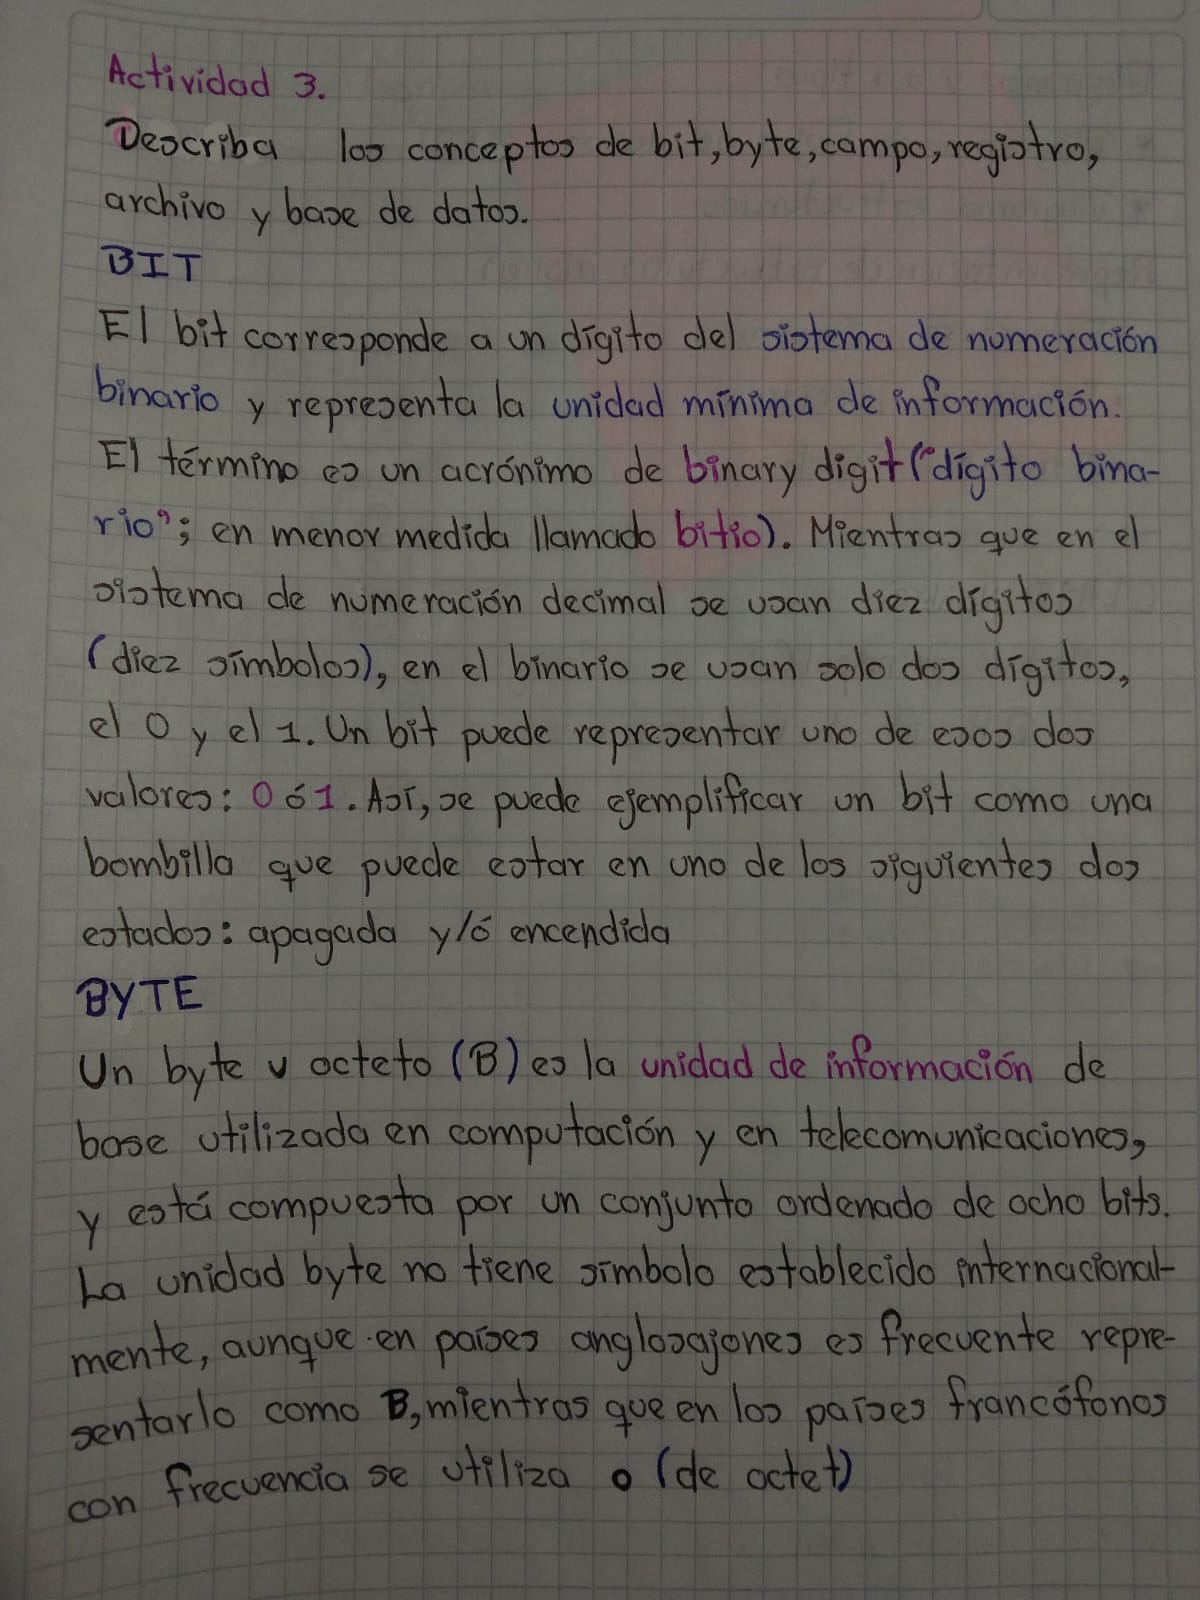 Actividad 3.
Describa los conceptos de bit, byte, campo, registro,
archivo y base de datos.
BIT
El bit corresponde a un dígito del sistema de numeración
binario y representa la unidad mínima de información.
El término es un acrónimo de binary digit ("dígito bina-
rio"; en menor medida llamado bitio). Mientras que en el
sistema de numeración decimal se usan diez dígitos
(diez símbolos), en el binario se usan solo dos dígitos,
el 0 y el 1. Un bit puede representar uno de esos dos
valores: 0 ó 1. Así, se puede ejemplificar un bit como una
bombilla que puede estar en uno de los siguientes dos
estados: apagada y/ó encendida
BYTE
Un byte u octeto (B) es la unidad de información de
base utilizada en computación y en telecomunicaciones,
y está compuesta por un conjunto ordenado de ocho bits.
La unidad byte no tiene símbolo establecido internacional-
mente, aunque en países anglosajones es frecuente repre-
sentarlo como B, mientras que en los países francófonos
con frecuencia se utiliza o (de octet)